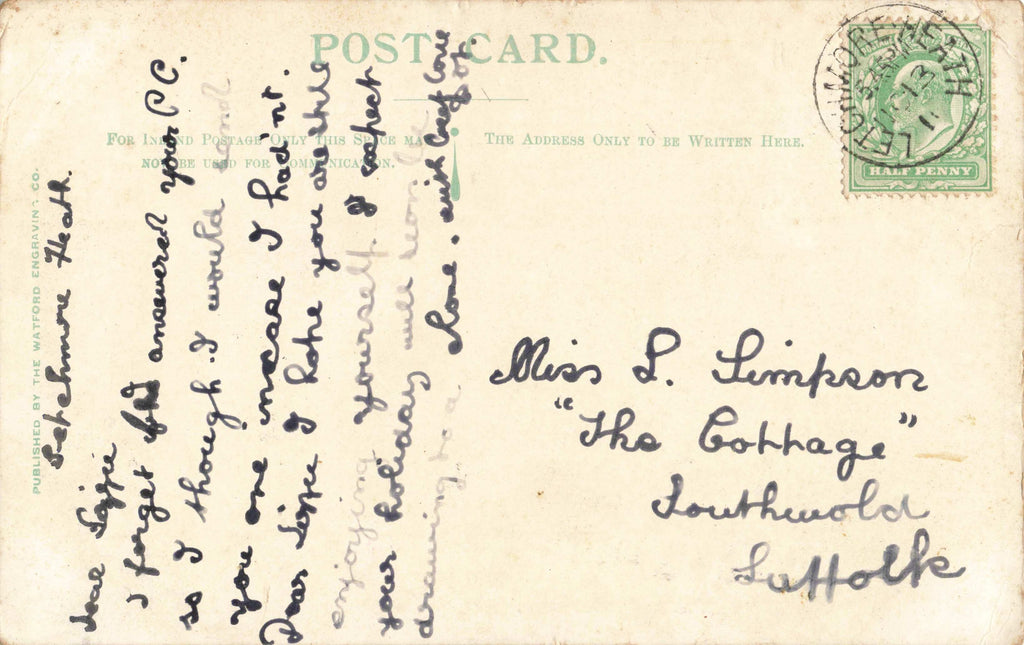 POST CARD.
FOR INLAND POSTAGE ONLY THIS SPACE MAY
NOT BE USED FOR COMMUNICATION.
THE ADDRESS ONLY TO BE WRITTEN HERE.
HALF PENNY
LETCHMORE HEATH
PUBLISHED BY THE WATFORD ENGRAVING CO.
Letchmore Heath.
Dear Lizzie
I forget if I answered your P.C.
so I though. I would send
you one incase I had'nt.
Dear Lizzie I hope you are still
enjoying yourself. I expect
your holiday will soon be
drawing to a
close. with best love
Miss L. Simpson
"The Cottage"
Southwold
Suffolk